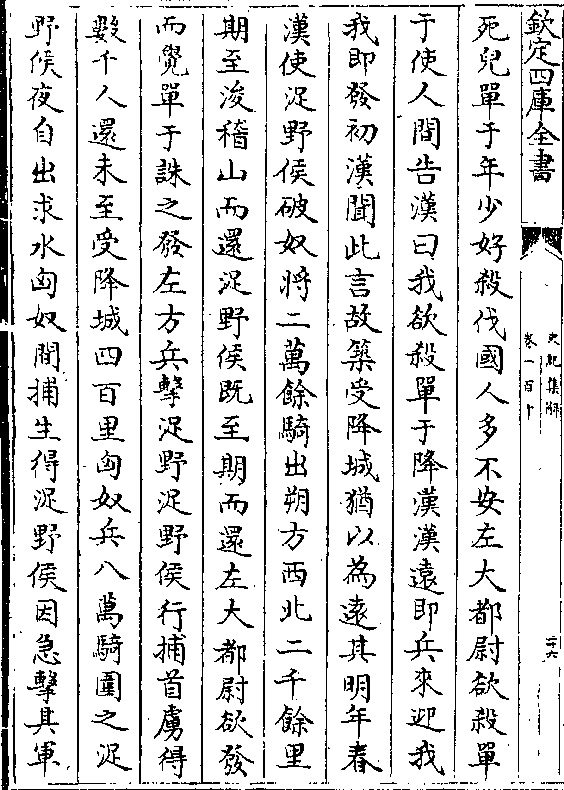 欽定四庫全書
史記集解
卷一百十
二十六
死兒單于年少好殺伐國人多不安左大都尉欲殺單
于使人間告漢曰我欲殺單于降漢漢遠即兵來迎我
我即發初漢聞此言故築受降城猶以為遠其明年春
漢使浞野侯破奴將二萬餘騎出朔方西北二千餘里
期至浚稽山而還浞野侯既至期而還左大都尉欲發
而覺單于誅之發左方兵擊浞野浞野侯行捕首虜得
數千人還未至受降城四百里匈奴兵八萬騎圍之浞
野侯夜自出求水匈奴間捕生得浞野侯因急擊其軍